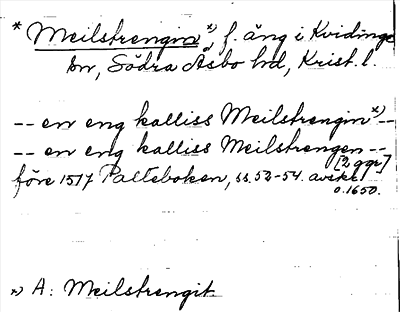 * Meilstrengin *) f. äng i Kvidinge
sn, Södra Åsbo hd, Krist. l.
-- en eng kalliss Meilstrengin *) --
-- en eng kalliss Meilstrengen --
[2 ggr]
före 1517 Palteboken, ss. 53-54. avskr.
o. 1650.
*) A: Meilstrengit.